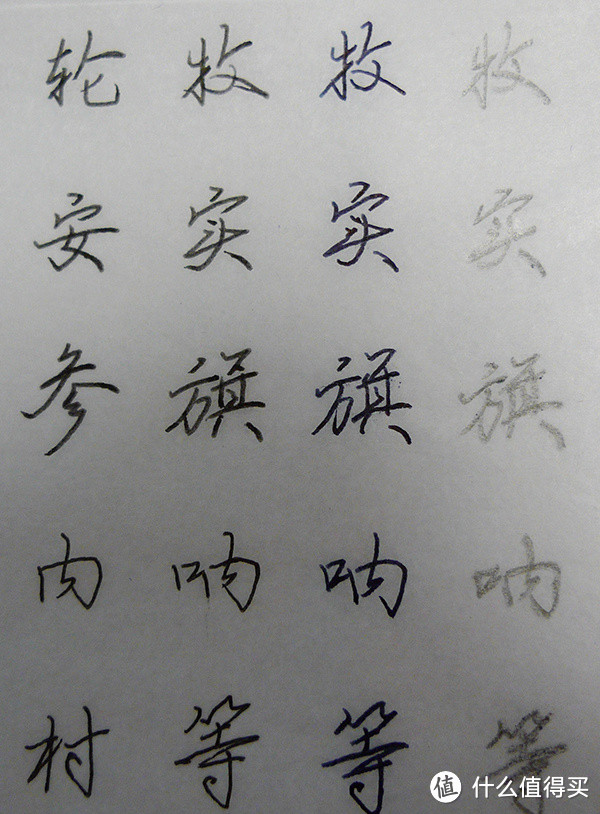 轮 牧 牧 牧
安 实 实 实
参 旗 旗 旗
内 呐 呐 呐
村 等 等 等
值 什么值得买